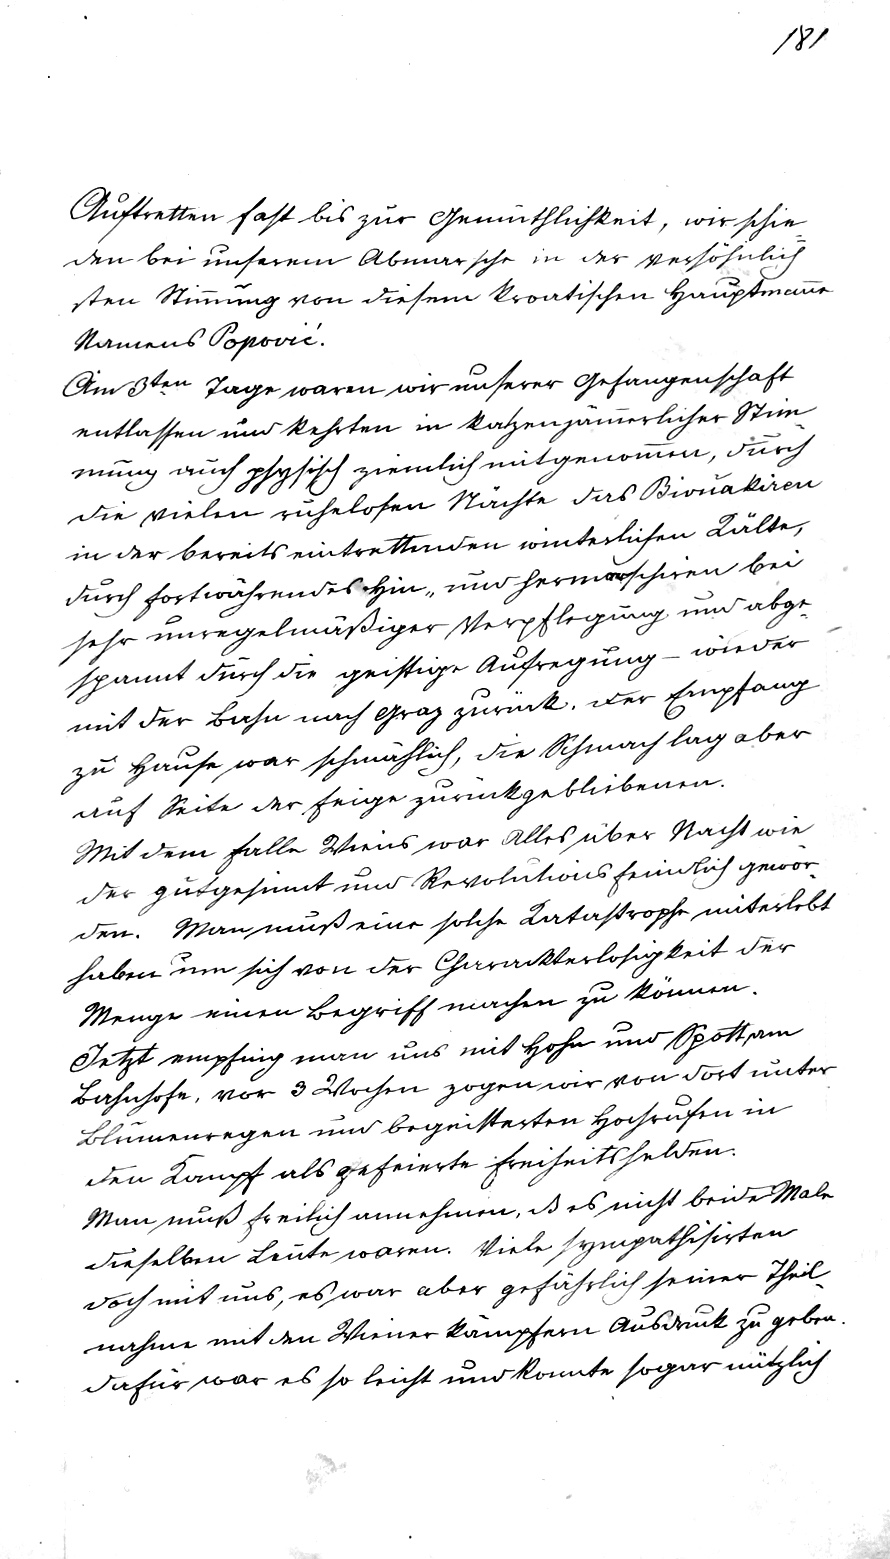 181
Auftretten fast bis zur Gemüthlichkeit, wir schie-
den bei unserem Abmarsche in der versöhnlich
sten Stim̄ung von diesem kroatischen Hauptman̄e
Namens Popović.
Am 3ten Tage waren wir unserer Gefangenschaft
entlassen und kehrten in katzenjäm̄erlicher Stim-
mung auch physisch ziemlich mitgenom̄en, durch
die vielen ruhelosen Nächte das Bivuakiren
in der bereits eintrettenden winterlichen Kälte,
durch fortwährendes Hin„ und hermarschiren bei
sehr unregelmäßiger Verpflegung und abge-
spannt durch die geistige Aufregung – wieder
mit der Bahn nach Graz zurück. Der Empfang
zu Hause war schmählich, die Schmach lag aber
auf Seite der feige zurückgebliebenen.
Mit dem Falle Wiens war Alles über Nacht wie
der gutgesinnt und Revolutionsfeindlich gewor-
den. Man muß eine solche Katastrophe miterlebt
haben um sich von der Charackterlosigkeit der
Menge einen Begriff machen zu können.
Jetzt empfing man uns mit Hohn und Spott am
Bahnhofe, vor 3 Wochen zogen wir von dort unter
Blumenregen und begeisterten Hochrufen in
den Kampf als gefeierte Freiheitshelden.
Man muß freilich annehmen, ds es nicht beide Male
dieselben Leute waren. Viele sympathisirten
doch mit uns, es war aber gefährlich seiner Theil-
nahme mit den Wiener Kämpfern Ausdruk zu geben.
dafür war es so leicht und konnte sogar nützlich